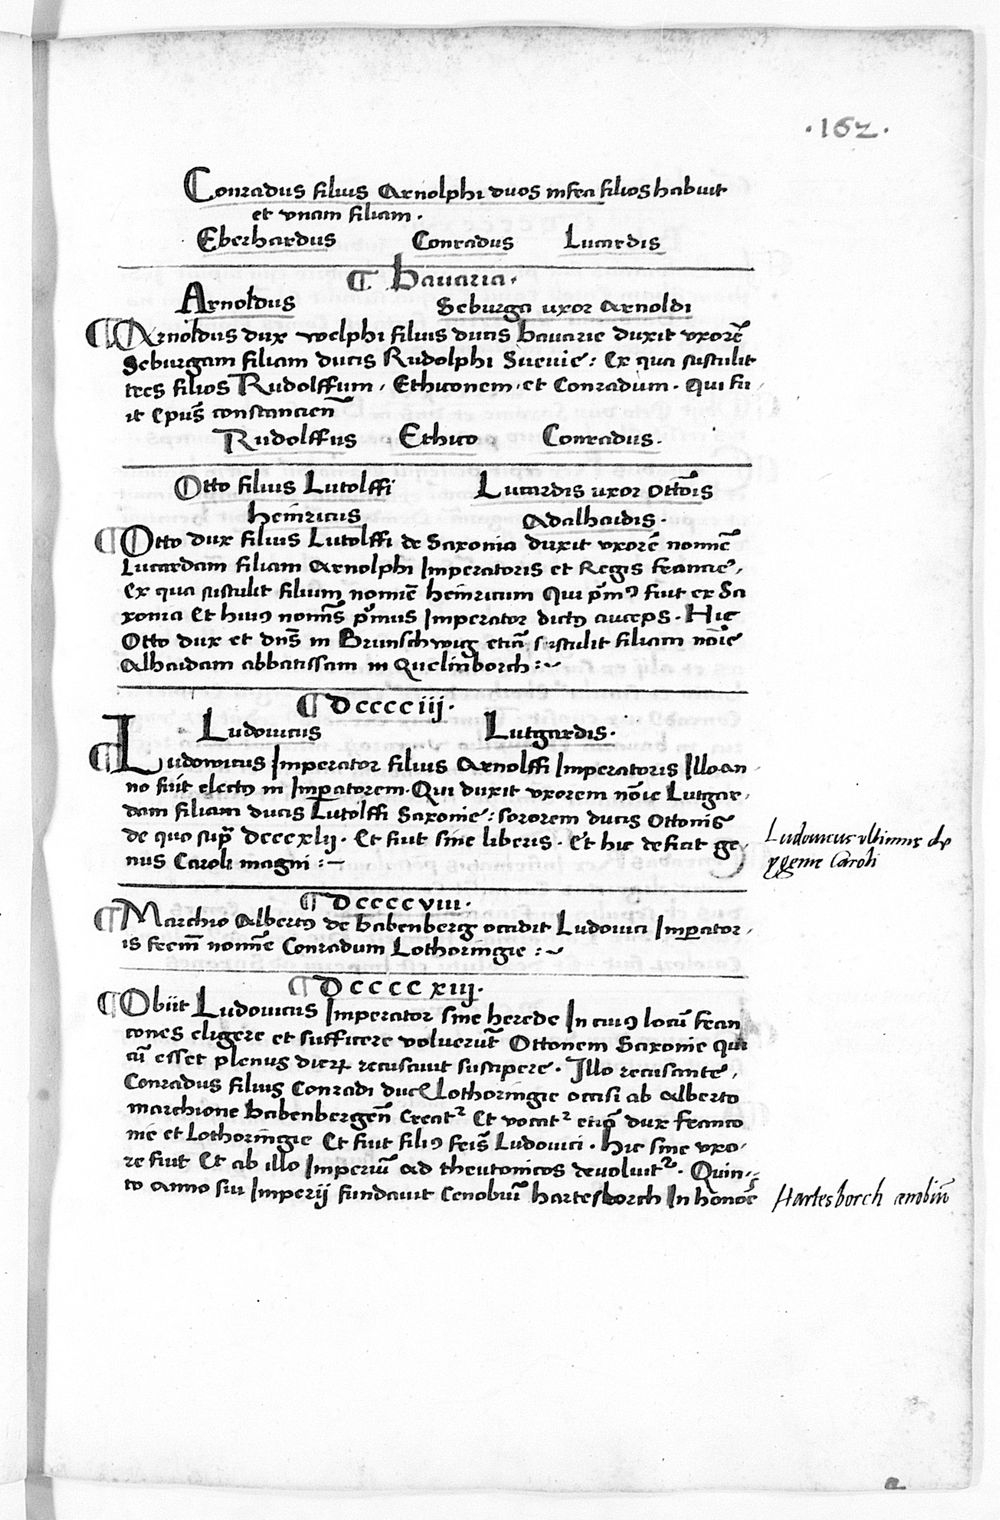 ·162·
Conradus filius Arnolphi duos infra filios habuit
et vnam filiam .
Eberhardus Conradus Lucardis
¶ Bauaria .
Arnoldus Seburga uxor Arnoldi
¶ Arnoldus dux welphi filius ducis bauarie duxit vxorē
Seburgam filiam ducis Rudolphi Sueuie : Ex qua sustulit
tres filios Rudolffum , Ethiconem . et Conradum . Qui fu
it Ep̄us constancien̄
Rudolffus Ethico Conradus .
Otto filius Lutolffi Lucardis uxor Ottōis
heinricus Adalhaidis .
¶ Otto dux filius Lutolffi de Saxonia duxit vxorē nomīe
Lucardam filiam Arnolphi Imperatoris et Regis francie ,
Ex qua sustulit filium nomīe heinricum Qui p̄mꝰ fuit ex Sa
xonia Et huiꝰ nomīs p̄mus Imperator dictꝰ auceps . Hic
Otto dux et dn̄s in Brunschwig etiā sustulit filiam nōīe
Alhaidam abbatissam in Quelinborch :~
¶ Dcccciij .
Ludouicus Lutgardis .
¶ Ludowicus Imperator filius Arnolffi Imperatoris Illo an
no fuit electꝰ in Imꝑatorem . Qui duxit vxorem nōīe Lutgar ,
dam filiam ducis Lutolffi Saxonie : sororem ducis Ottonis
de quo sup̄ Dcccxlij . Et fuit sine liberis . Et hic deficit ge ,
nus Caroli magni :~
Ludouicus vltimus de
progenie Caroli
¶ Dccccviii .
¶ Marchio Albertꝰ de babenberg occidit Ludouici Imꝑator ,
is frēm nomīe Conradum Lothoringie :~
¶ Dccccxiij .
¶ Obiit Ludouicus Imperator sine herede In cuiꝰ locū fran
cones eligere et sufficere voluerūt Ottonem Saxonie qui
cū esset plenus dierꝝ recusauit suscipere . Illo recusante ,
Conradus filius Conradi ducis Lothoringie occisi ab Alberto
marchione babenbergen̄ Creatꝛ Et vocatꝛ etiā dux franco
nie et Lothoringie Et fuit filiꝰ fr̄is Ludouici . Hic sine vxo ,
re fuit Et ab illo Imperiū ad theutonicos deuoluitꝛ . Quin ,
to anno sui Imperij fundauit Cenobiū hartesborch In honorē
Hartesborch cenobiū
a